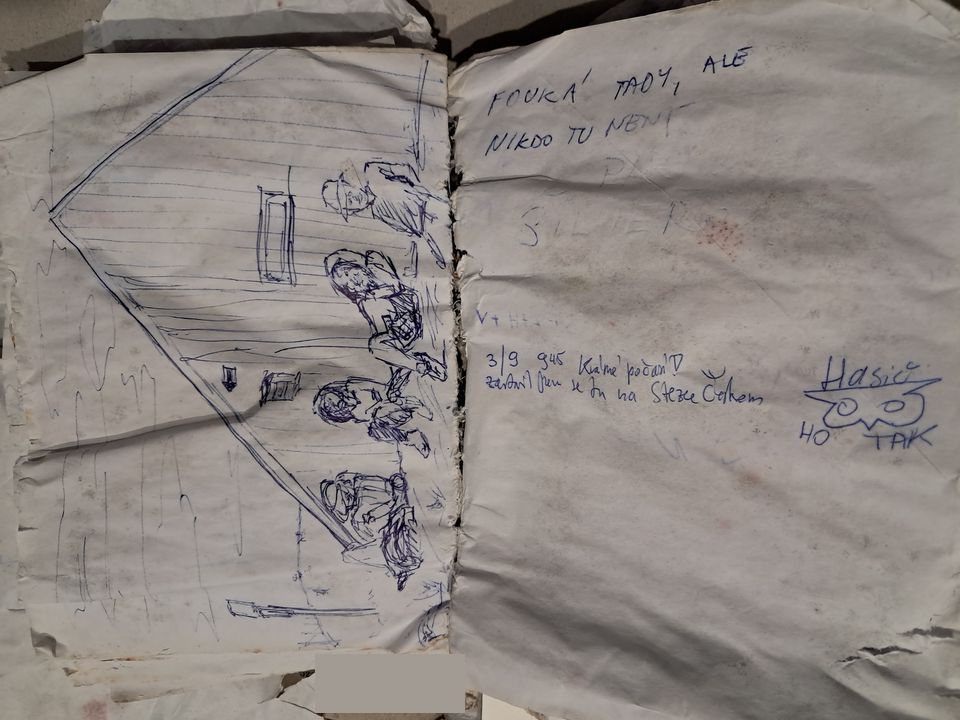 FOUKÁ TADY, ALE
NIKDO TU NENÍ
3/9 945 Krásné počasí
zastavil jsem se tu na Stezce Českem
Hasiči
NO TAK